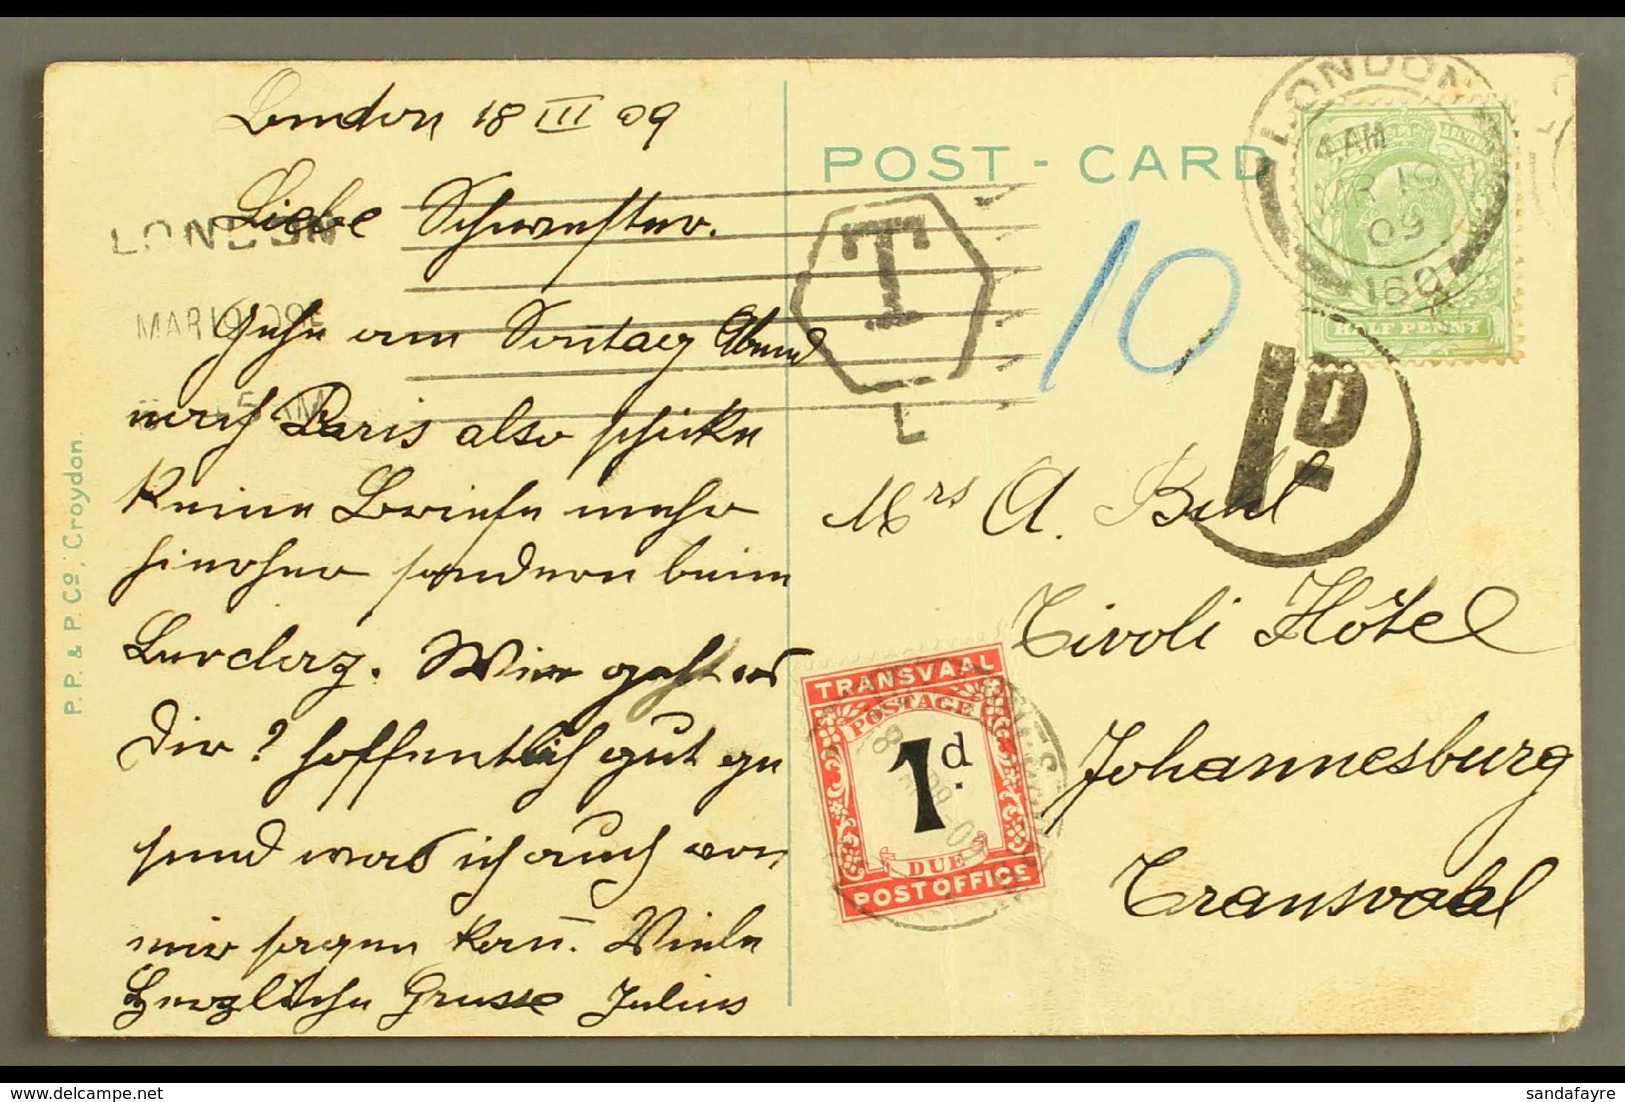 London 18 III 09
Liebe Schwester.
Gehe am Sontag Abend
nach Paris also schicke
keine Briefe mehr
hierher sondern beim
Wie geht es
Dir? hoffentlich gut zu
was ich auch von
mir sagen kan̄. Viele
Herzliche Grusse Julius
P.P. & P. Co., Croydon.
LONDON
MAR 19 09
POST-CARD
T
L
10
LONDON
4 AM
MR 19
09
160
HALF PENNY
1D
Mrs A.
Tivoli Hôtel
Johannesburg
Transvaal
TRANSVAAL
POSTAGE
1d.
DUE
POST OFFICE
sandafayre